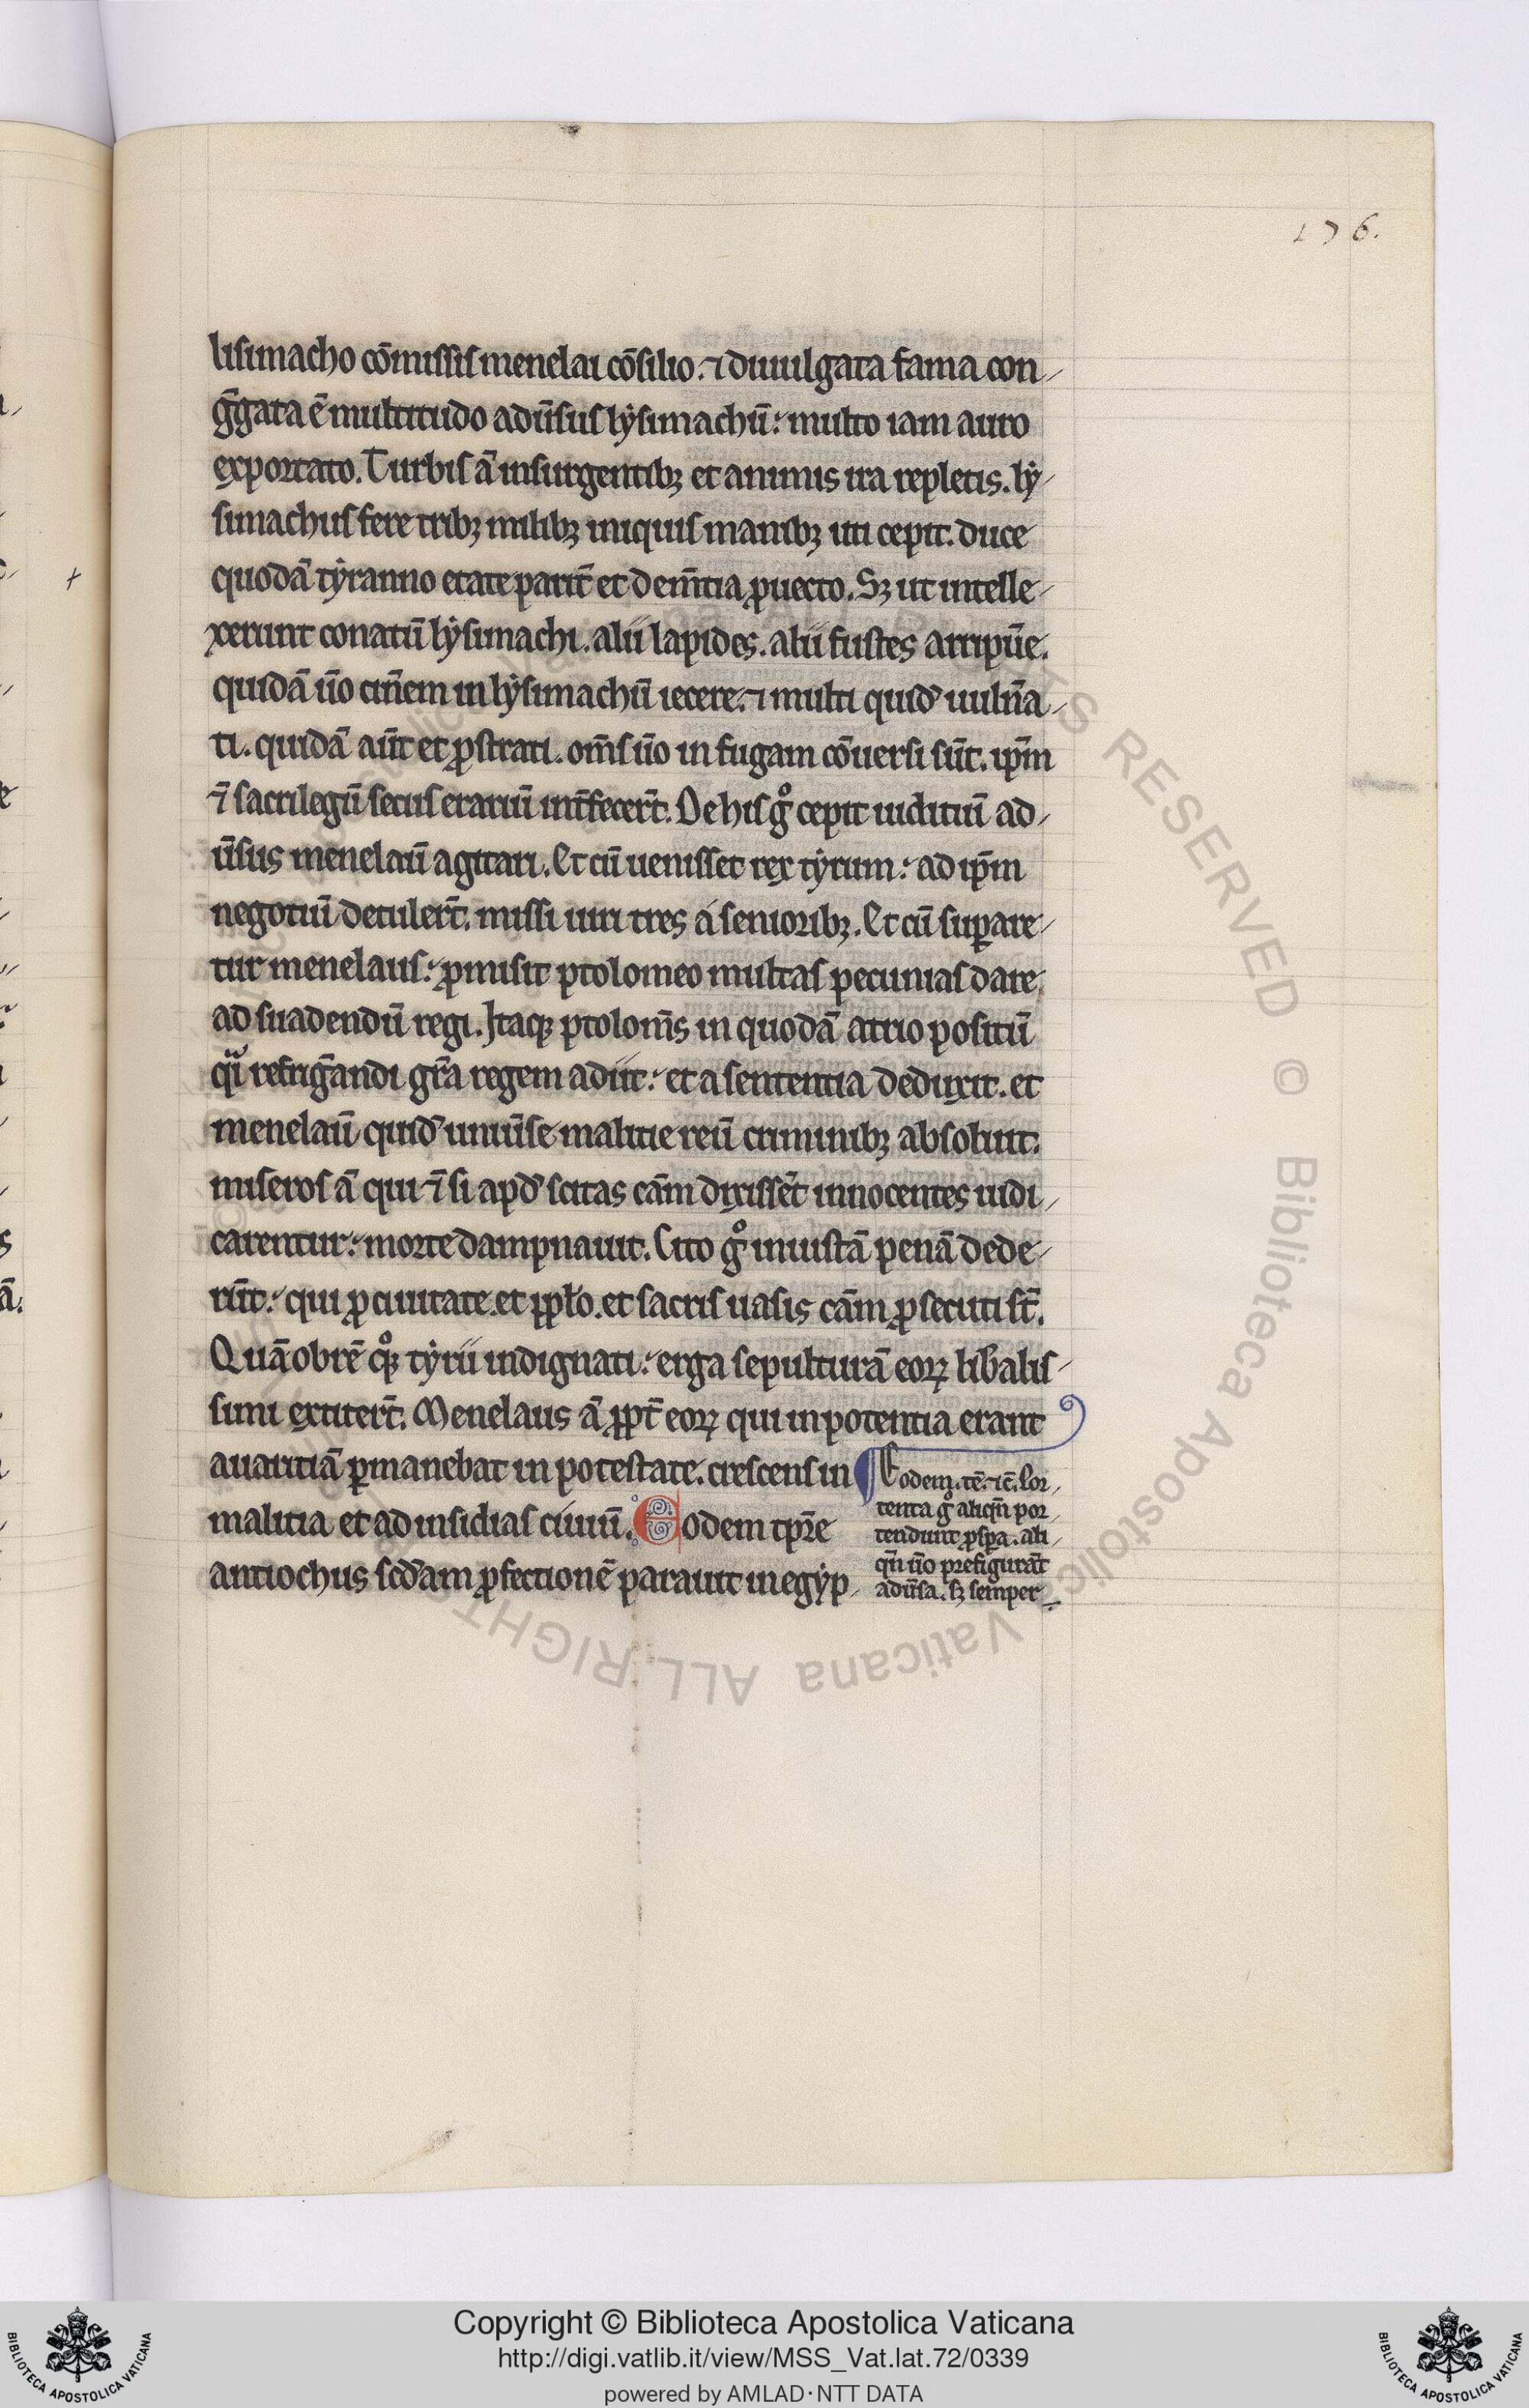 176.
lisimacho cōmissis menelai cōsilio. ⁊ diuulgata fama con
g̅gata ē multitudo adūsus lẏsimachū: multo iam auro
exportato. Turbis ā insurgentibꝫ et animis ira repletis. lẏ
simachus fere tribꝫ milibꝫ iniquis manibꝫ uti cepit. duce
quodā tẏranno etate parit̄ et dem̄tia ꝓuecto. Sꝫ ut intelle
xerunt conatū lẏsimachi. alii lapides. alii fustes arripūe.
quidā ūo cin̄em in lẏsimachū iecere. ⁊ multi quid̄ uuln̄a
ti. quidā aūt et ꝓstrati. om̄s ūo in fugam cōuersi sūt. ip̄m
⁊̄ sacrilegū secus erariū int̄fecer̄t. De his gͦ cepit iuditiū ad
ūsus menelaū agitari. Et cū uenisset rex tẏrum: ad ip̄m
negotiū detuler̄t. missi uiri tres á senioribꝫ. Et cū suꝑare
tur menelaus: ꝓmisit ptolomeo multas pecunias dare
ad suadendū regi. Itaqꝫ ptolom̄s in quodā atrio positū
qͣi refrig̅andi gr̄a regem adiit: et a sententia deduxit. et
menelaū quid̄ uniūse malitie reū criminibꝫ absoluit.
miseros ā qui ⁊̄ si apd̄ scitas cām dixissēt innocentes iudi
carentur: morte dampnauit. Cito gͦ iniustā penā dede
rūt: qui ꝓ ciuitate. et ꝓpl̄o. et sacris uasis cām ꝓsecuti st̄.
Quāobrē qͦꝫ tẏrii indignati: erga sepulturā eoꝝ lib̄alis
simi extiter̄t. Menelaus ā ꝓpt̄ eoꝝ qui in potentia erant
auaritiā ꝑmanebat in potestate. crescens in
malitia et ad insidias ciuiū. Eodem tp̄re
antiochus scd̄am ꝓfectionē parauit in egẏp
¶ Eodem. tē. ⁊c̄. Por
tenta gͦ aliqn̄ por
tendunt ꝓsꝑa. ali
qn̄ ūo prefigurāt
adūsa. sꝫ semper
ALL RIGHTS RESERVED © Biblioteca Apostolica Vaticana
Copyright © Biblioteca Apostolica Vaticana
http://digi.vatlib.it/view/MSS_Vat.lat.72/0339
powered by AMLAD·NTT DATA
BIBLIOTECA APOSTOLICA VATICANA
BIBLIOTECA APOSTOLICA VATICANA